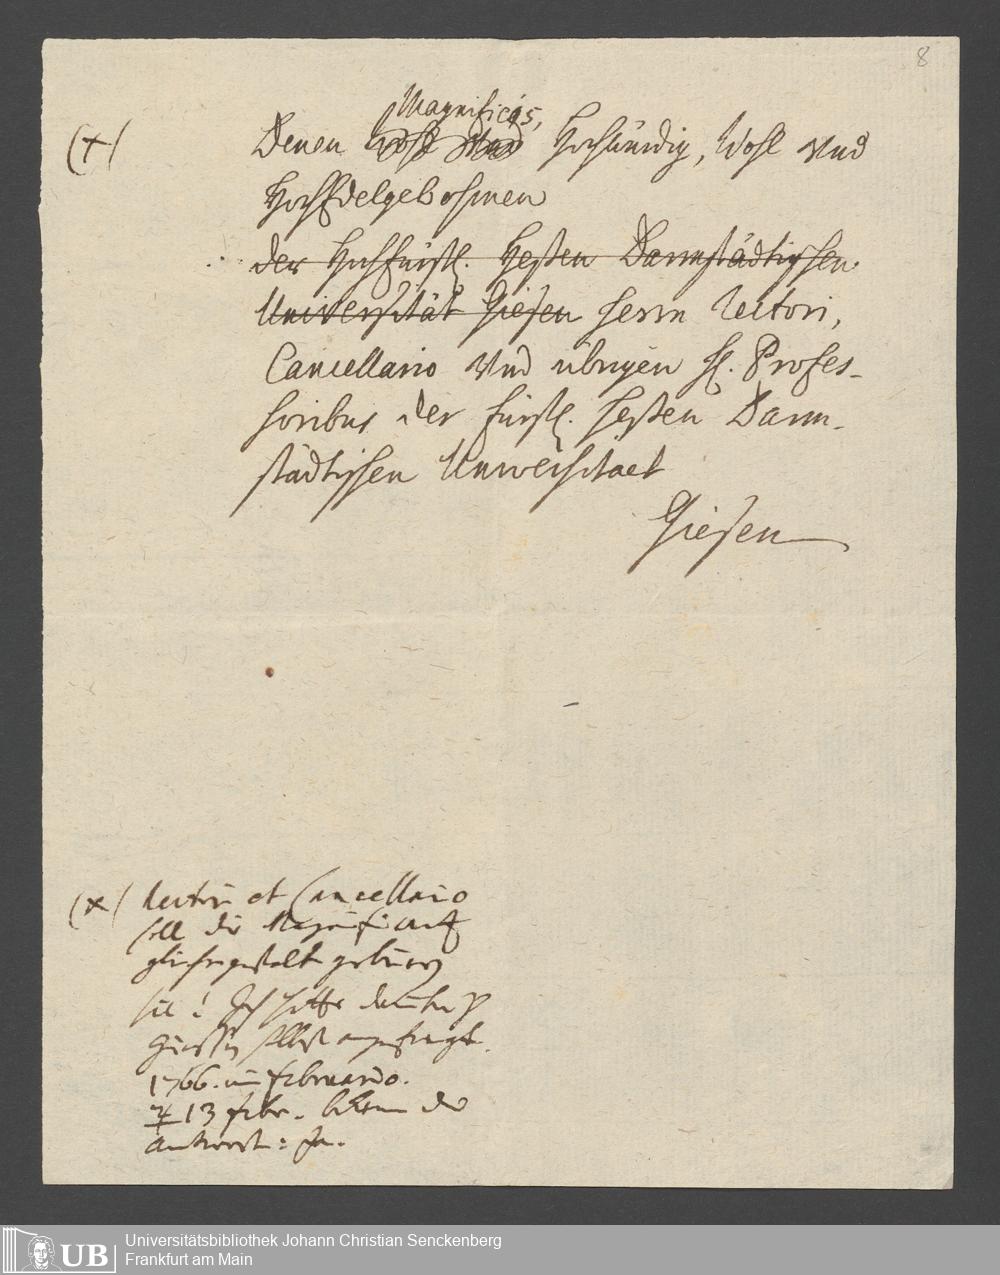 8
(+) Denen Magnificis, Hochwürdig, Wohl und
HochEdelgebohrnen
der Hochfürstl. Heßen Darmstädtischen
Universität Giesen Herrn Rectori,
Cancellario und übrigen H. Profes-
soribus der fürstl. Heßen Darm-
städtischen Universitaet
Giesen
(x) Rectori et Cancellario
soll die
gleichgestalt
Ich hatte
selbst angefragt.
1766. im februario.
♃ 13 febr. bekam die
antwort: Ja.
UB Universitätsbibliothek Johann Christian Senckenberg
Frankfurt am Main